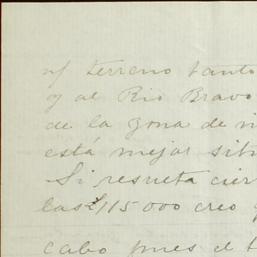 n/ terreno tanto
y al Rio Bravo
de la zona de
está mejor
Si resueta
las $115.000 creo
cabo pues el